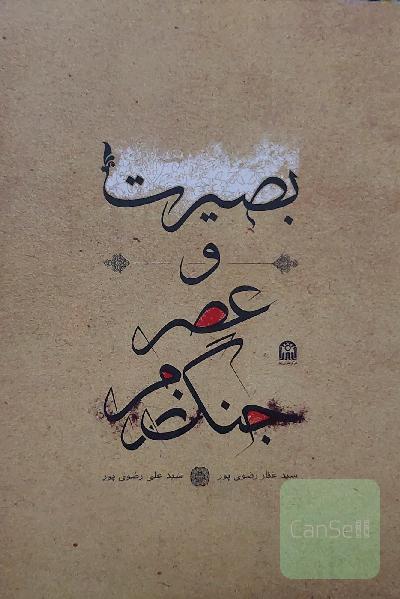 بصیرت
و
عصر
جنگ نرم
سید غفار رضوی پور سید علی رضوی پور
CanSell